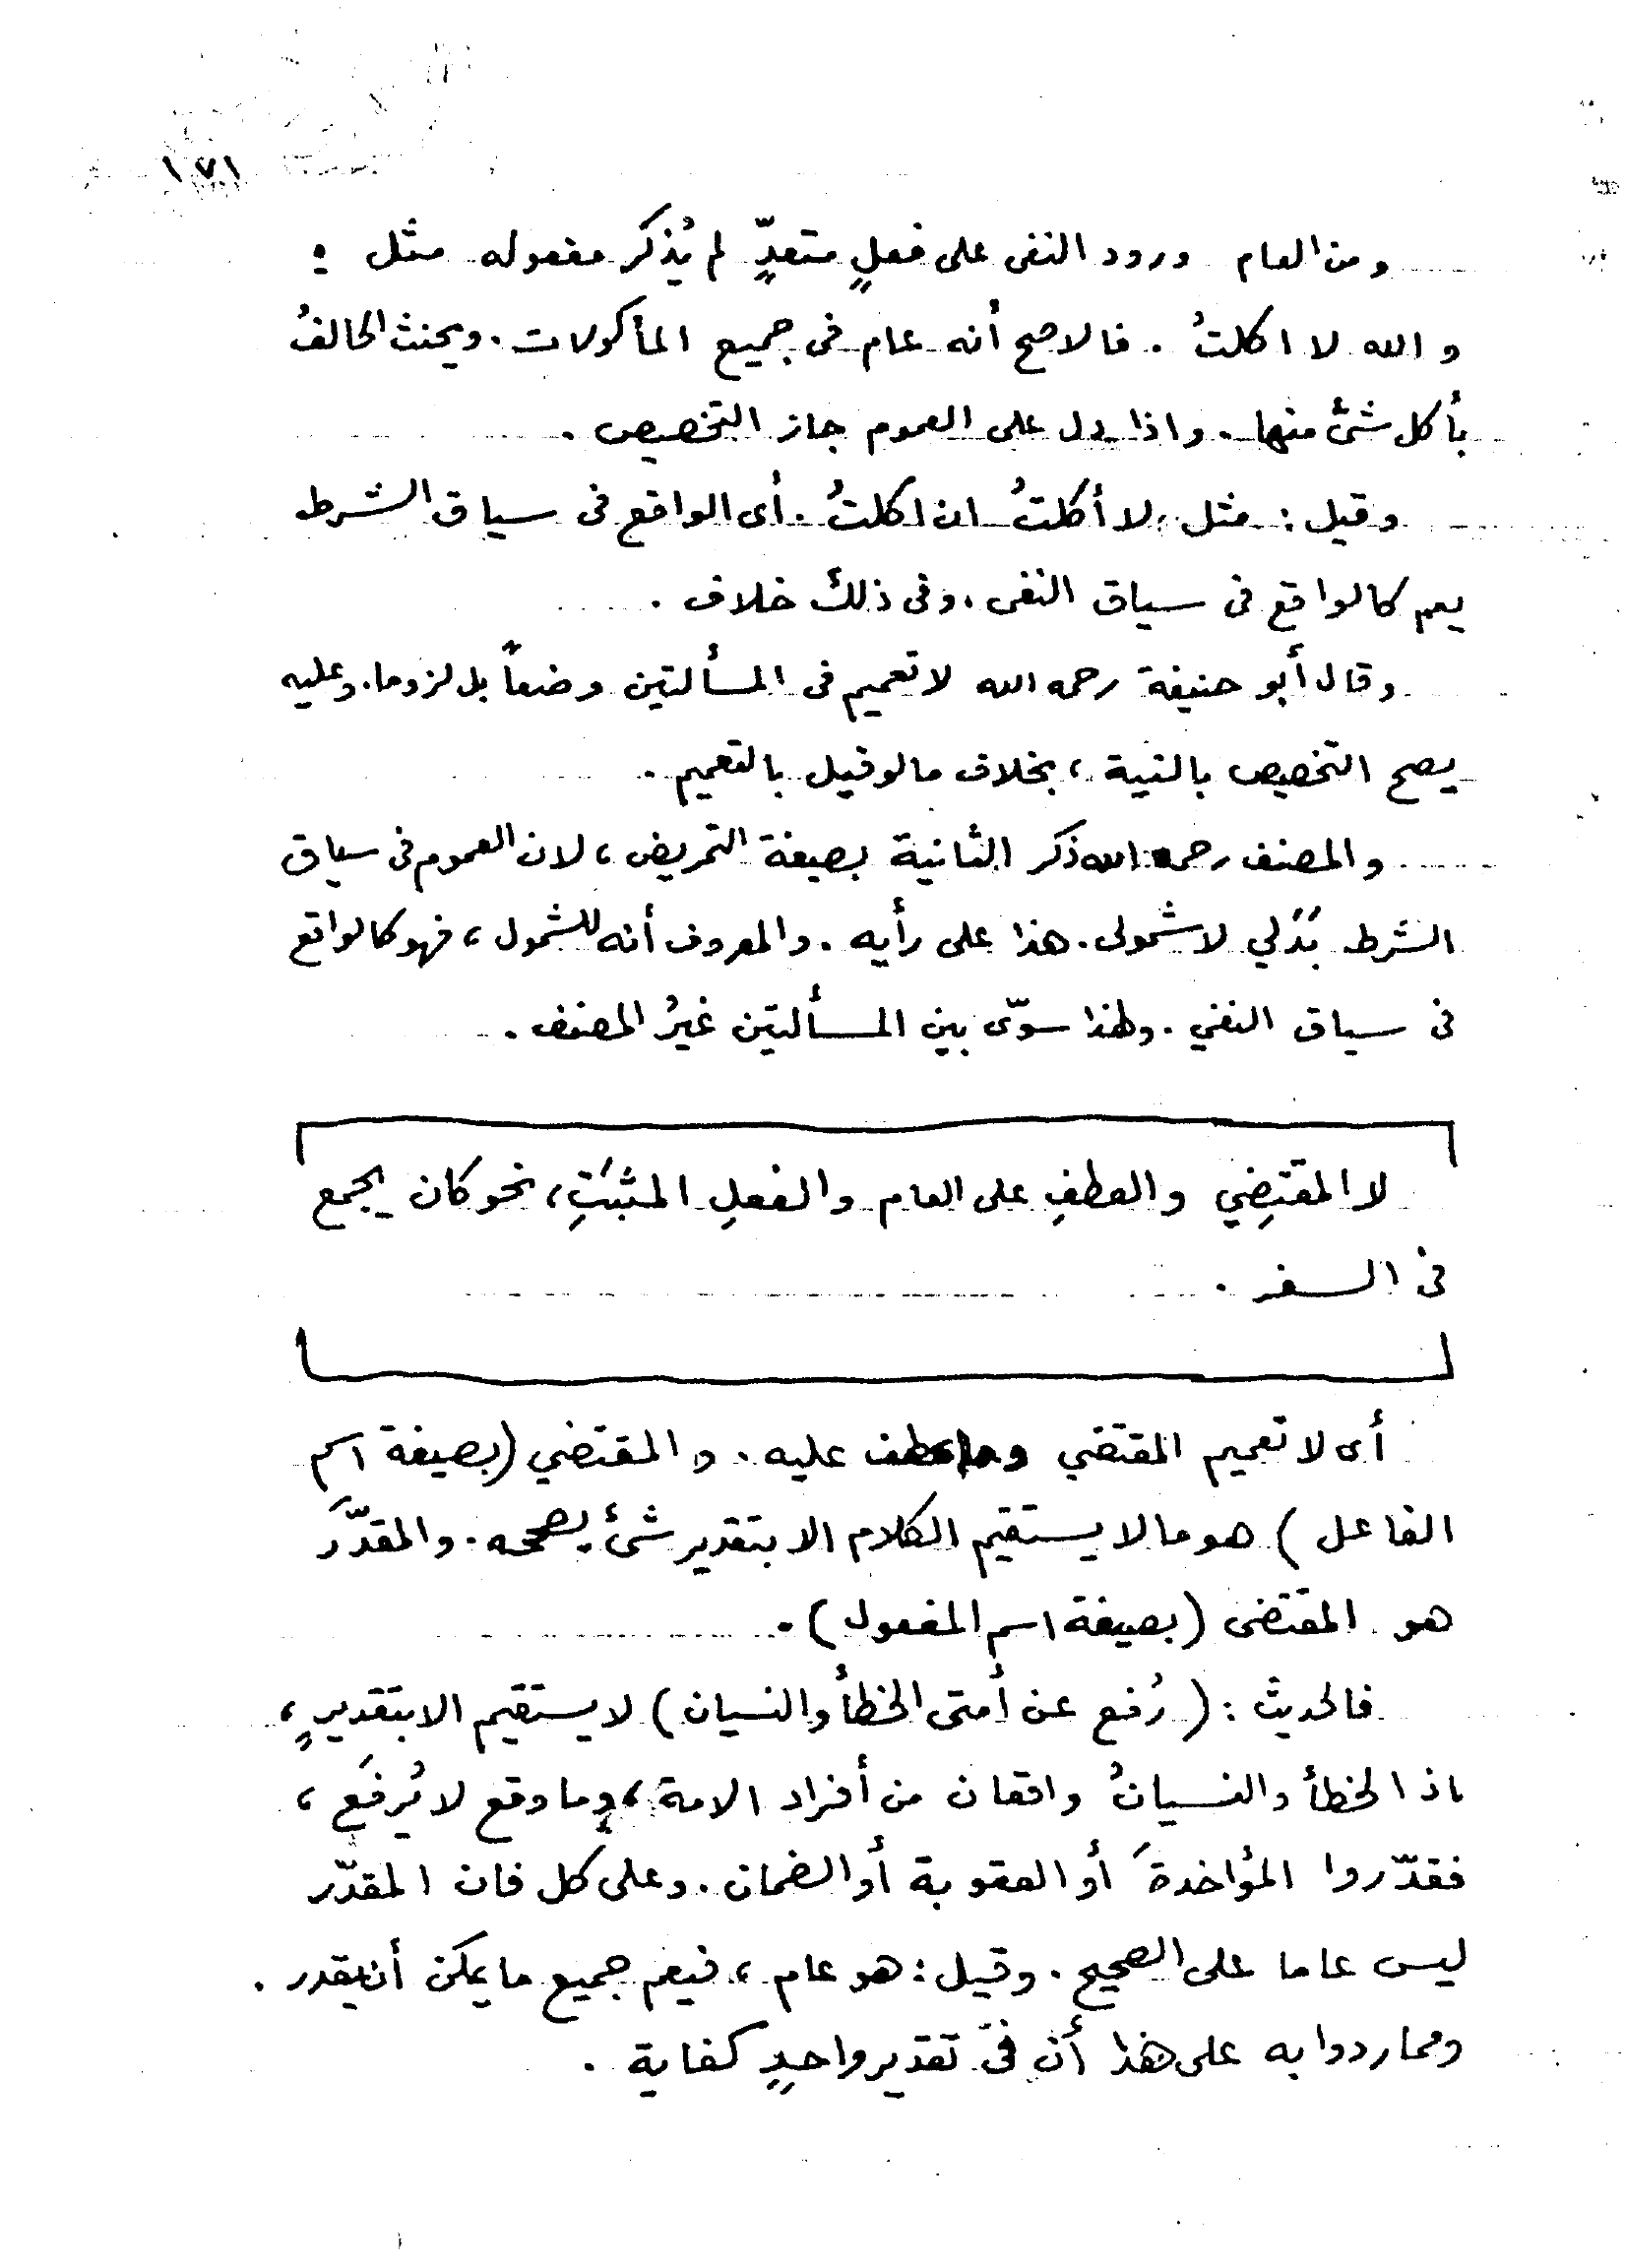 ١٧١
ومن العام ورود النفى على فعلٍ متعدٍّ لم يُذكر مفعوله مثل :
والله لا اكلتُ . فالاصح أنه عام فى جميع المأكولات . ويحنث الحالفُ
بأكل شئ منها . واذا دل على العموم جاز التخصيص .
وقيل : مثل ، لا أكلتُ ان اكلتُ . أى الواقع فى سياق الشرط
يعم كالواقع فى سياق النفى ، وفى ذلك خلاف .
وقال أبو حنيفة رحمه الله لا تعميم فى المسألتين وضعاً بل لزوما . وعليه
يصح التخصيص بالنية ، بخلاف ما لو قيل بالتعميم .
والمصنف رحمه الله ذكر الثانية بصيغة التمريض ، لان العموم فى سياق
الشرط بَدَلي لا شمولى . هذا على رأيه . والمعروف أنه للشمول ، فهو كالواقع
فى سياق النفي . ولهذا سوّى بين المسألتين غيرُ المصنف .
لا المقتضِي والعطفِ على العام والفعلِ المثبَتِ ، نحو كان يجمع
فى السفر .
أى لا تعميم المقتضي وما عطف عليه . والمقتضي (بصيغة اسم
الفاعل ) هو ما لا يستقيم الكلام الا بتقدير شئ يصححه . والمقدَّر
هو المقتضى (بصيغة اسم المفعول ) .
فالحديث : ( رُفع عن أمتى الخطأ والنسيان ) لا يستقيم الا بتقديرٍ ،
اذ الخطأ والنسيانُ واقعان من أفراد الامة ، وما وقع لا يُرفَع ،
فقدّروا المؤاخذةَ أو العقوبة أو الضمان . وعلى كل فان المقدّر
ليس عاما على الصحيح . وقيل : هو عام ، فيعم جميع ما يمكن أن يقدر .
ومما ردوا به على هذا أن فى تقدير واحدٍ كفاية .